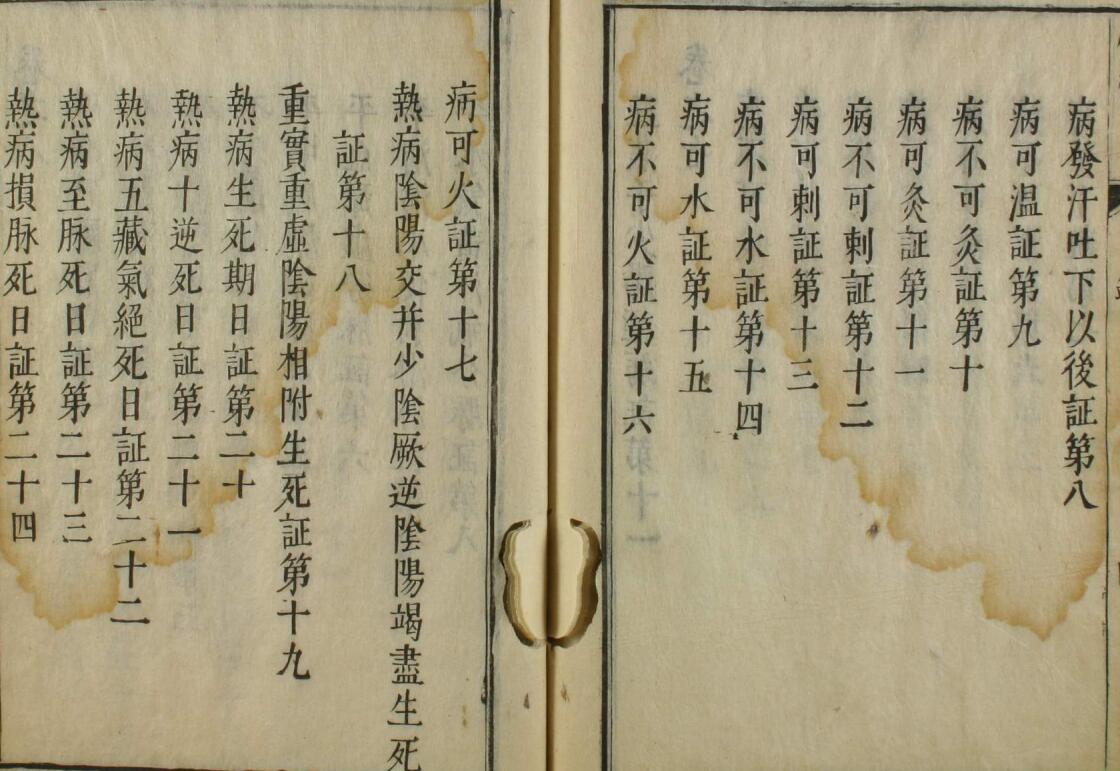 病發汗吐下以後証第八
病可温証第九
病不可灸証第十
病可灸証第十一
病不可刺証第十二
病可刺証第十三
病不可水証第十四
病可水証第十五
病不可火証第十六
病可火証第十七
熱病陰陽交并少陰厥逆陰陽竭盡生死
証第十八
重實重虛陰陽相附生死証第十九
熱病生死期日証第二十
熱病十逆死日証第二十一
熱病五藏氣絕死日証第二十二
熱病至脉死日証第二十三
熱病損脉死日証第二十四